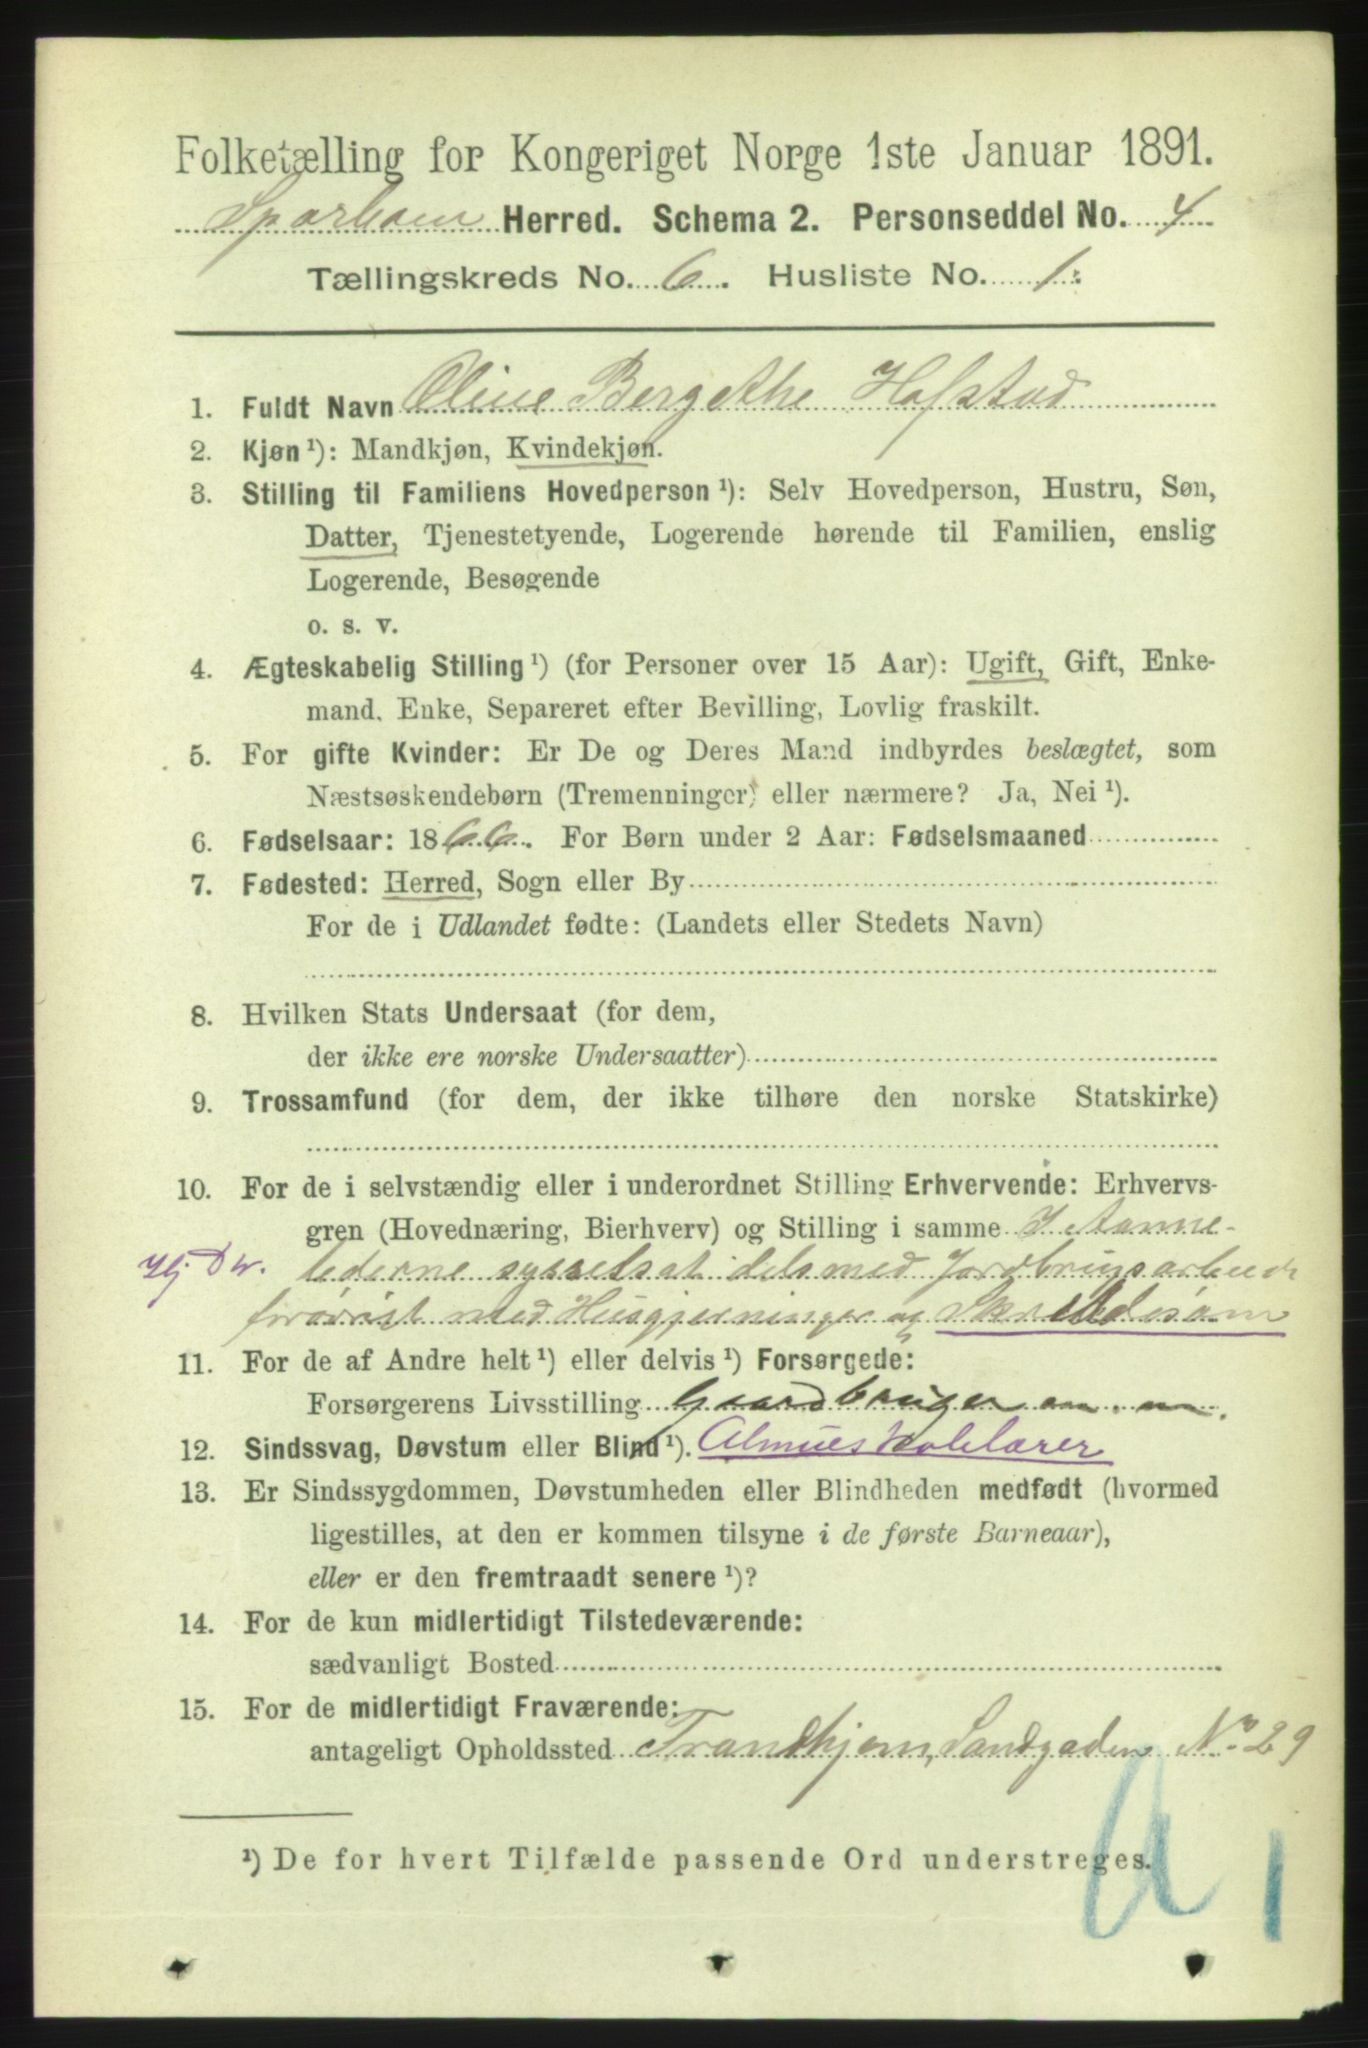 Folketælling for Kongeriget Norge 1ste Januar 1891.
Sparbuen Herred. Schema 2. Personseddel No. 4
Tællingskreds No. 6. Husliste No. 1.
1. Fuldt Navn Oline Bergethe Hofstad
2. Kjøn¹): Mandkjøn, Kvindekjøn.
3. Stilling til Familiens Hovedperson¹): Selv Hovedperson, Hustru, Søn,
Datter, Tjenestetyende, Logerende hørende til Familien, enslig
Logerende, Besøgende
o. s. v.
4. Ægteskabelig Stilling¹) (for Personer over 15 Aar): Ugift, Gift, Enke-
mand, Enke, Separeret efter Bevilling, Lovlig fraskilt.
5. For gifte Kvinder: Er De og Deres Mand indbyrdes beslægtet, som
Næstsøskendebørn (Tremenninger) eller nærmere? Ja, Nei¹).
6. Fødselsaar: 1866. For Børn under 2 Aar: Fødselsmaaned
7. Fødested: Herred, Sogn eller By
For de i Udlandet fødte: (Landets eller Stedets Navn)
8. Hvilken Stats Undersaat (for dem,
der ikke ere norske Undersaatter)
9. Trossamfund (for dem, der ikke tilhøre den norske Statskirke)
10. For de i selvstændig eller i underordnet Stilling Erhvervende: Erhvervs-
gren (Hovednæring, Bierhverv) og Stilling i samme I Aanne-
tiderne sysselsat dels med Jordbrugsarbeide
forøvrigt med Husgjerninger og Skreddesøm
11. For de af Andre helt¹) eller delvis¹) Forsørgede:
Forsørgerens Livsstilling Gaardbruger m. m.
12. Sindssvag, Døvstum eller Blind¹). Almueskolelærer
13. Er Sindssygdommen, Døvstumheden eller Blindheden medfødt (hvormed
ligestilles, at den er kommen tilsyne i de første Barneaar),
eller er den fremtraadt senere¹)?
14. For de kun midlertidigt Tilstedeværende:
sædvanligt Bosted
15. For de midlertidigt Fraværende:
antageligt Opholdssted Trondhjem, Sandgaden No 29
¹) De for hvert Tilfælde passende Ord understreges.